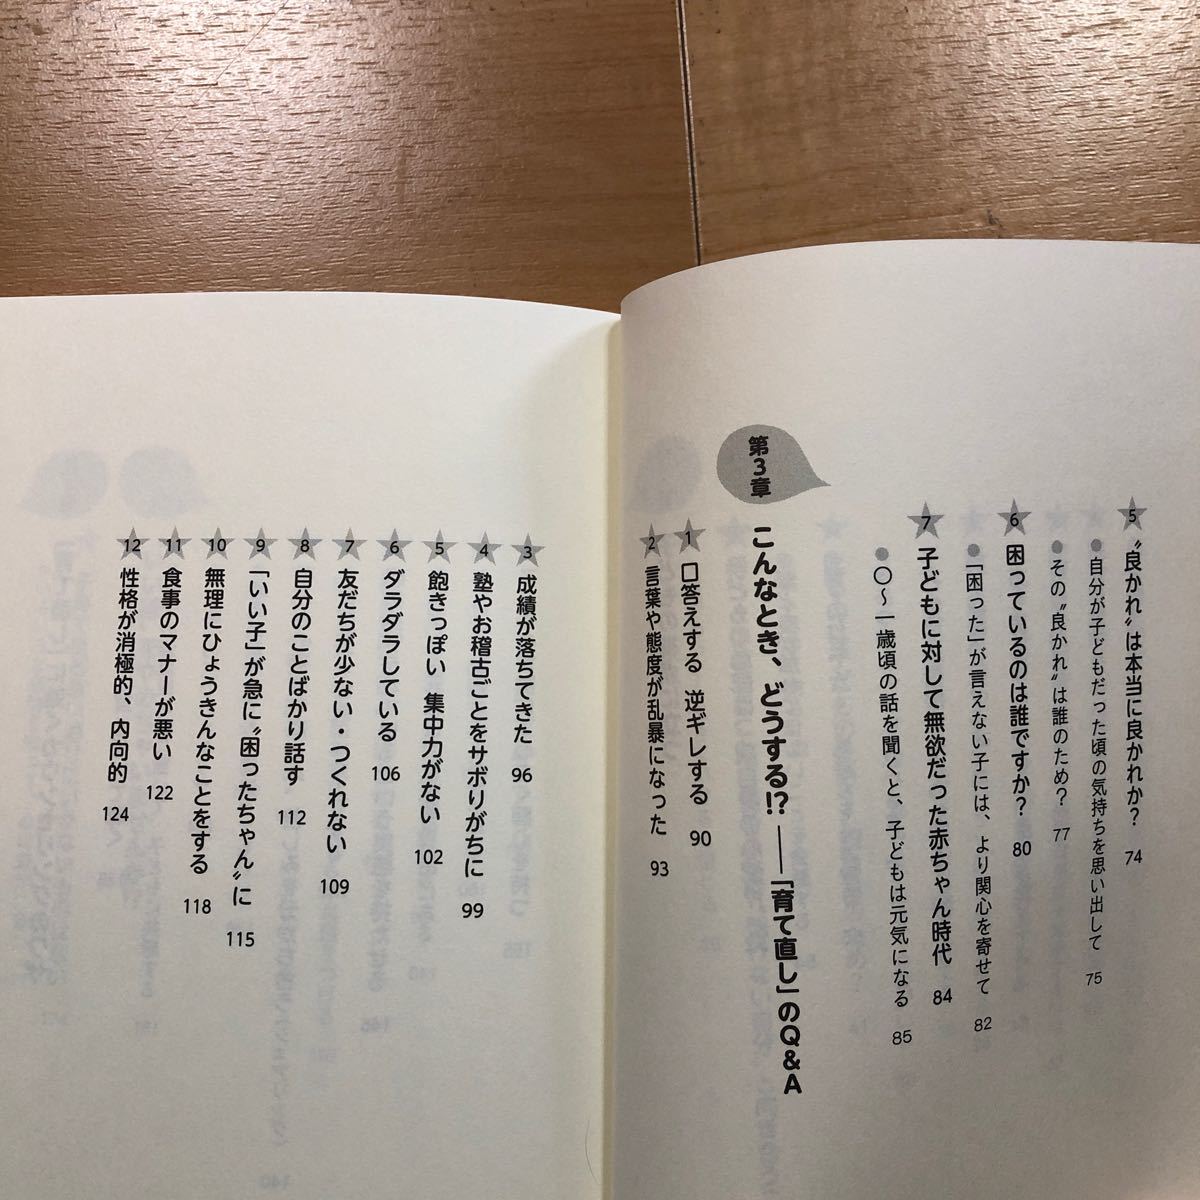 5 〝良かれ〟は本当に良かれか? 74
●自分が子どもだった頃の気持ちを思い出して 75
●その〝良かれ〟は誰のため? 77
6 困っているのは誰ですか? 80
●「困った」が言えない子には、より関心を寄せて 82
7 子どもに対して無欲だった赤ちゃん時代 84
●〇〜一歳頃の話を聞くと、子どもは元気になる 85
第3章 こんなとき、どうする!?――「育て直し」のQ&A
1 口答えする 逆ギレする 90
2 言葉や態度が乱暴になった 93
3 成績が落ちてきた 96
4 塾やお稽古ごとをサボりがちに 99
5 飽きっぽい 集中力がない 102
6 ダラダラしている 106
7 友だちが少ない・つくれない 109
8 自分のことばかり話す 112
9 「いい子」が急に〝困ったちゃん〟に 115
10 無理にひょうきんなことをする 118
11 食事のマナーが悪い 122
12 性格が消極的、内向的 124